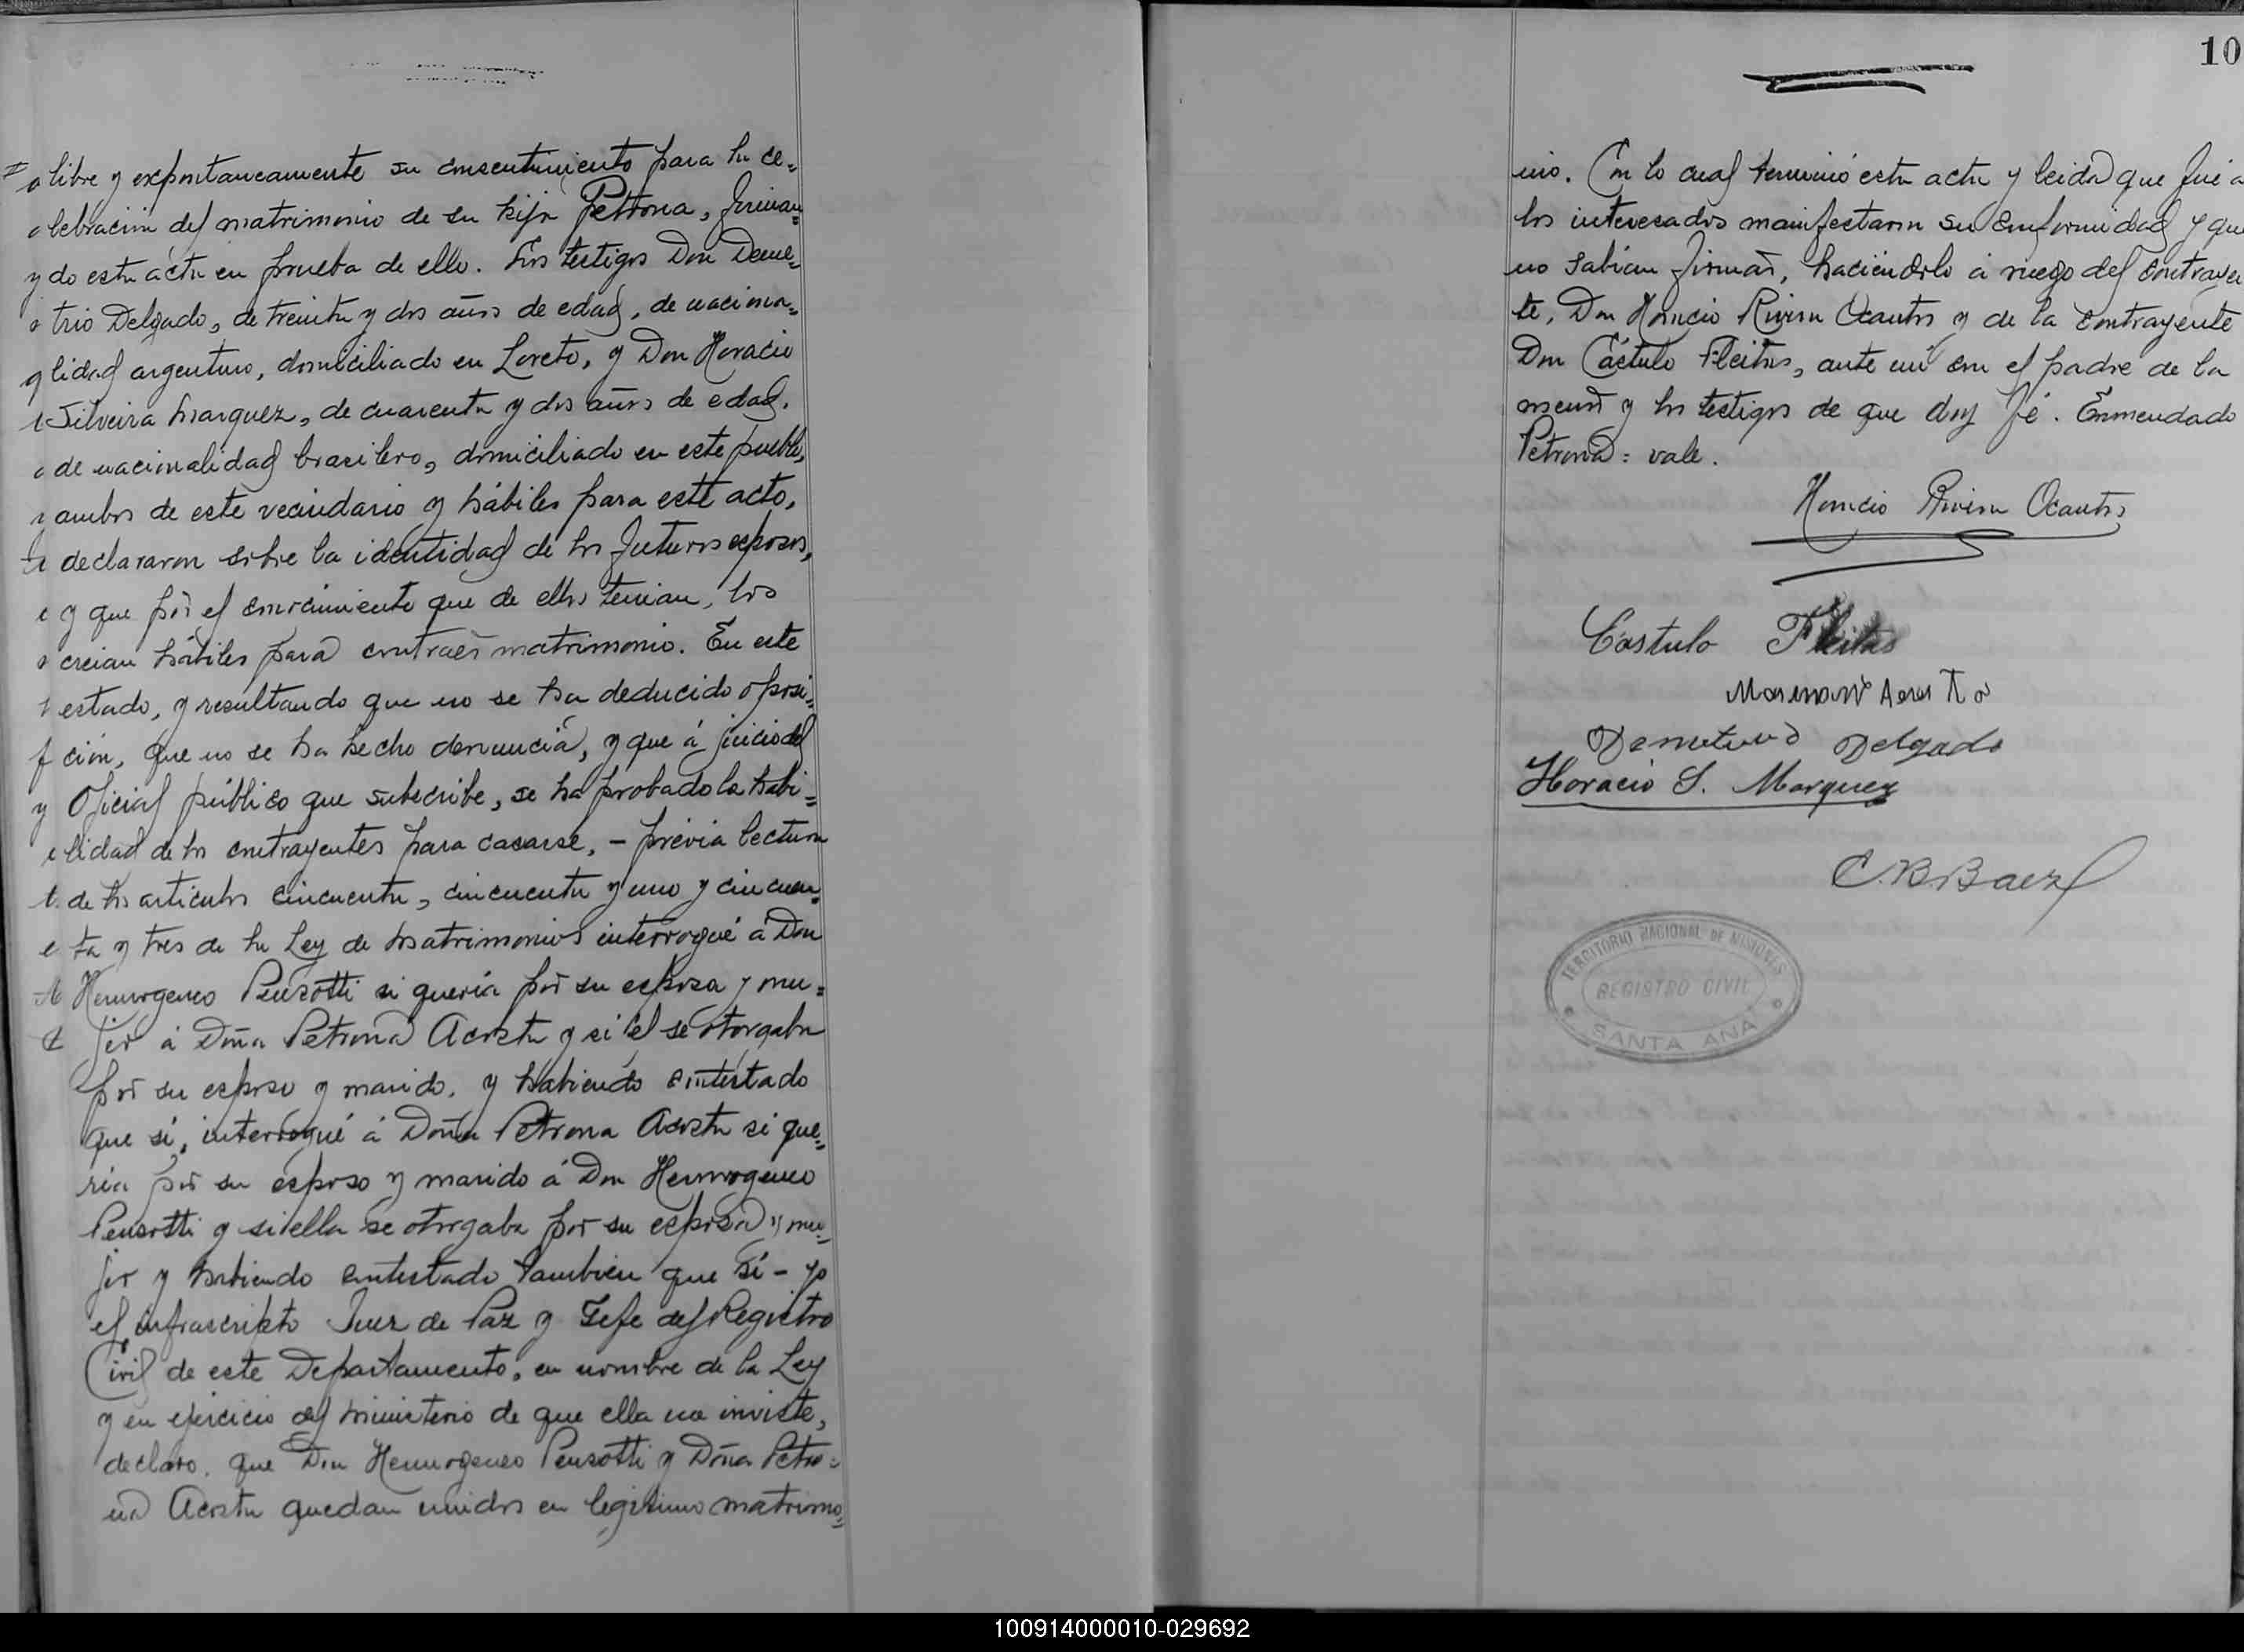 libre y expontaneamente su consentimiento para la ce-
lebración del matrimonio de su hija Petrona, firman=
do esta acta en prueba de ello. Los testigos Don Deme=
trio Delgado, de treinta y dos años de edad, de naciona=
lidad argentino, domiciliado en Loreto, y Don Horacio
Silveira Marquez, de cuarenta y dos años de edad,
de nacionalidad brasilero, domiciliado en este pueblo,
ambos de este vecindario y hábiles para este acto,
declararon sobre la identidad de los futuros esposos,
y que por el conocimiento que de ellos tenian, los
creian hábiles para contraer matrimonio. En este
estado, y resultando que no se ha deducido oposi=
ción, que no se ha hecho denuncia, y que á juicio del
Oficial público que subscribe, se ha probado la habi=
lidad de los contrayentes para casarse, - prévia lectura
de los articulos cincuenta, cincuenta y uno y cincuen=
ta y tres de la Ley de Matrimonios interrogué á Don
Hermogeneo Pensotti si queria por su esposa y mu=
jer á Doña Petrona Acosta y si él se otorgaba
por su esposo y marido, y habiendo contestado
que sí, interrogué á Doña Petrona Acosta si que=
ria por su esposo y marido á Don Hermogeneo
Pensotti y si ella se otorgaba por su esposa y mu=
jer y habiendo contestado tambien que sí - yo
el infrascripto Juez de Paz y Gefe del Registro
Civil de este Departamento, en nombre de la Ley
y en ejercicio del ministerio de que ella me inviste,
declaro, que Don Hermogeneo Pensotti y Doña Petro=
na Acosta quedan unidos en legitimo matrimo=
10
nio. Con lo cual terminó esta acta y leida que fué a
los interesados manifestaron su conformidad y que
no sabian firmar, haciéndolo á ruego del contrayen
te, Don Horacio Rivera Ocantos y de la contrayente
Don Cástulo Fleitas, ante mí con el padre de la
menor y los testigos de que doy fé. Enmendado
Petrona = vale.
Horacio Rivera Ocantos
Castulo Fleitas
Demetrio Delgado
Horacio S. Marquez
C. B. Baez
TERRITORIO NACIONAL DE MISIONES
REGISTRO CIVIL
SANTA ANA
100914000010-029692